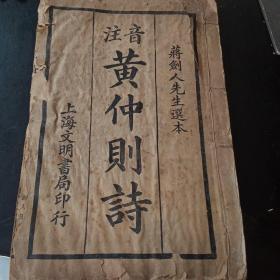 蔣劍人先生選本
音注
黃仲則詩
上海文明書局印行